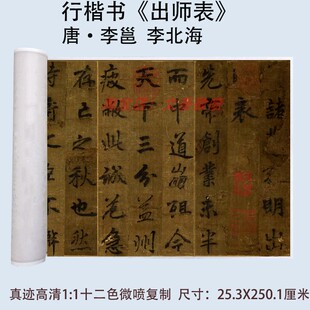 行楷书《出师表》
唐·李邕 李北海
諸葛孔明出
表
先帝創業未半
而中道崩殂今
天下三分益州
疲敝此誠危急
存亡之秋也然
真迹高清1:1十二色微喷复制 尺寸：25.3X250.1厘米